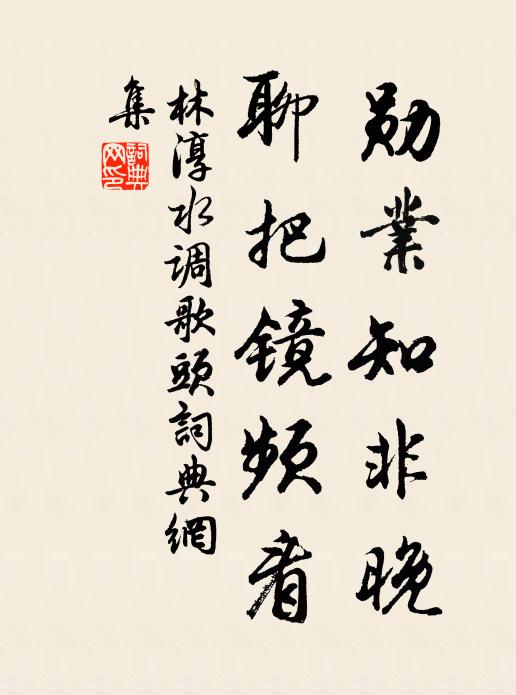 勋業知非晚
聊把镜频看
林淳水调歌頭詞典網
集
詞典
网印